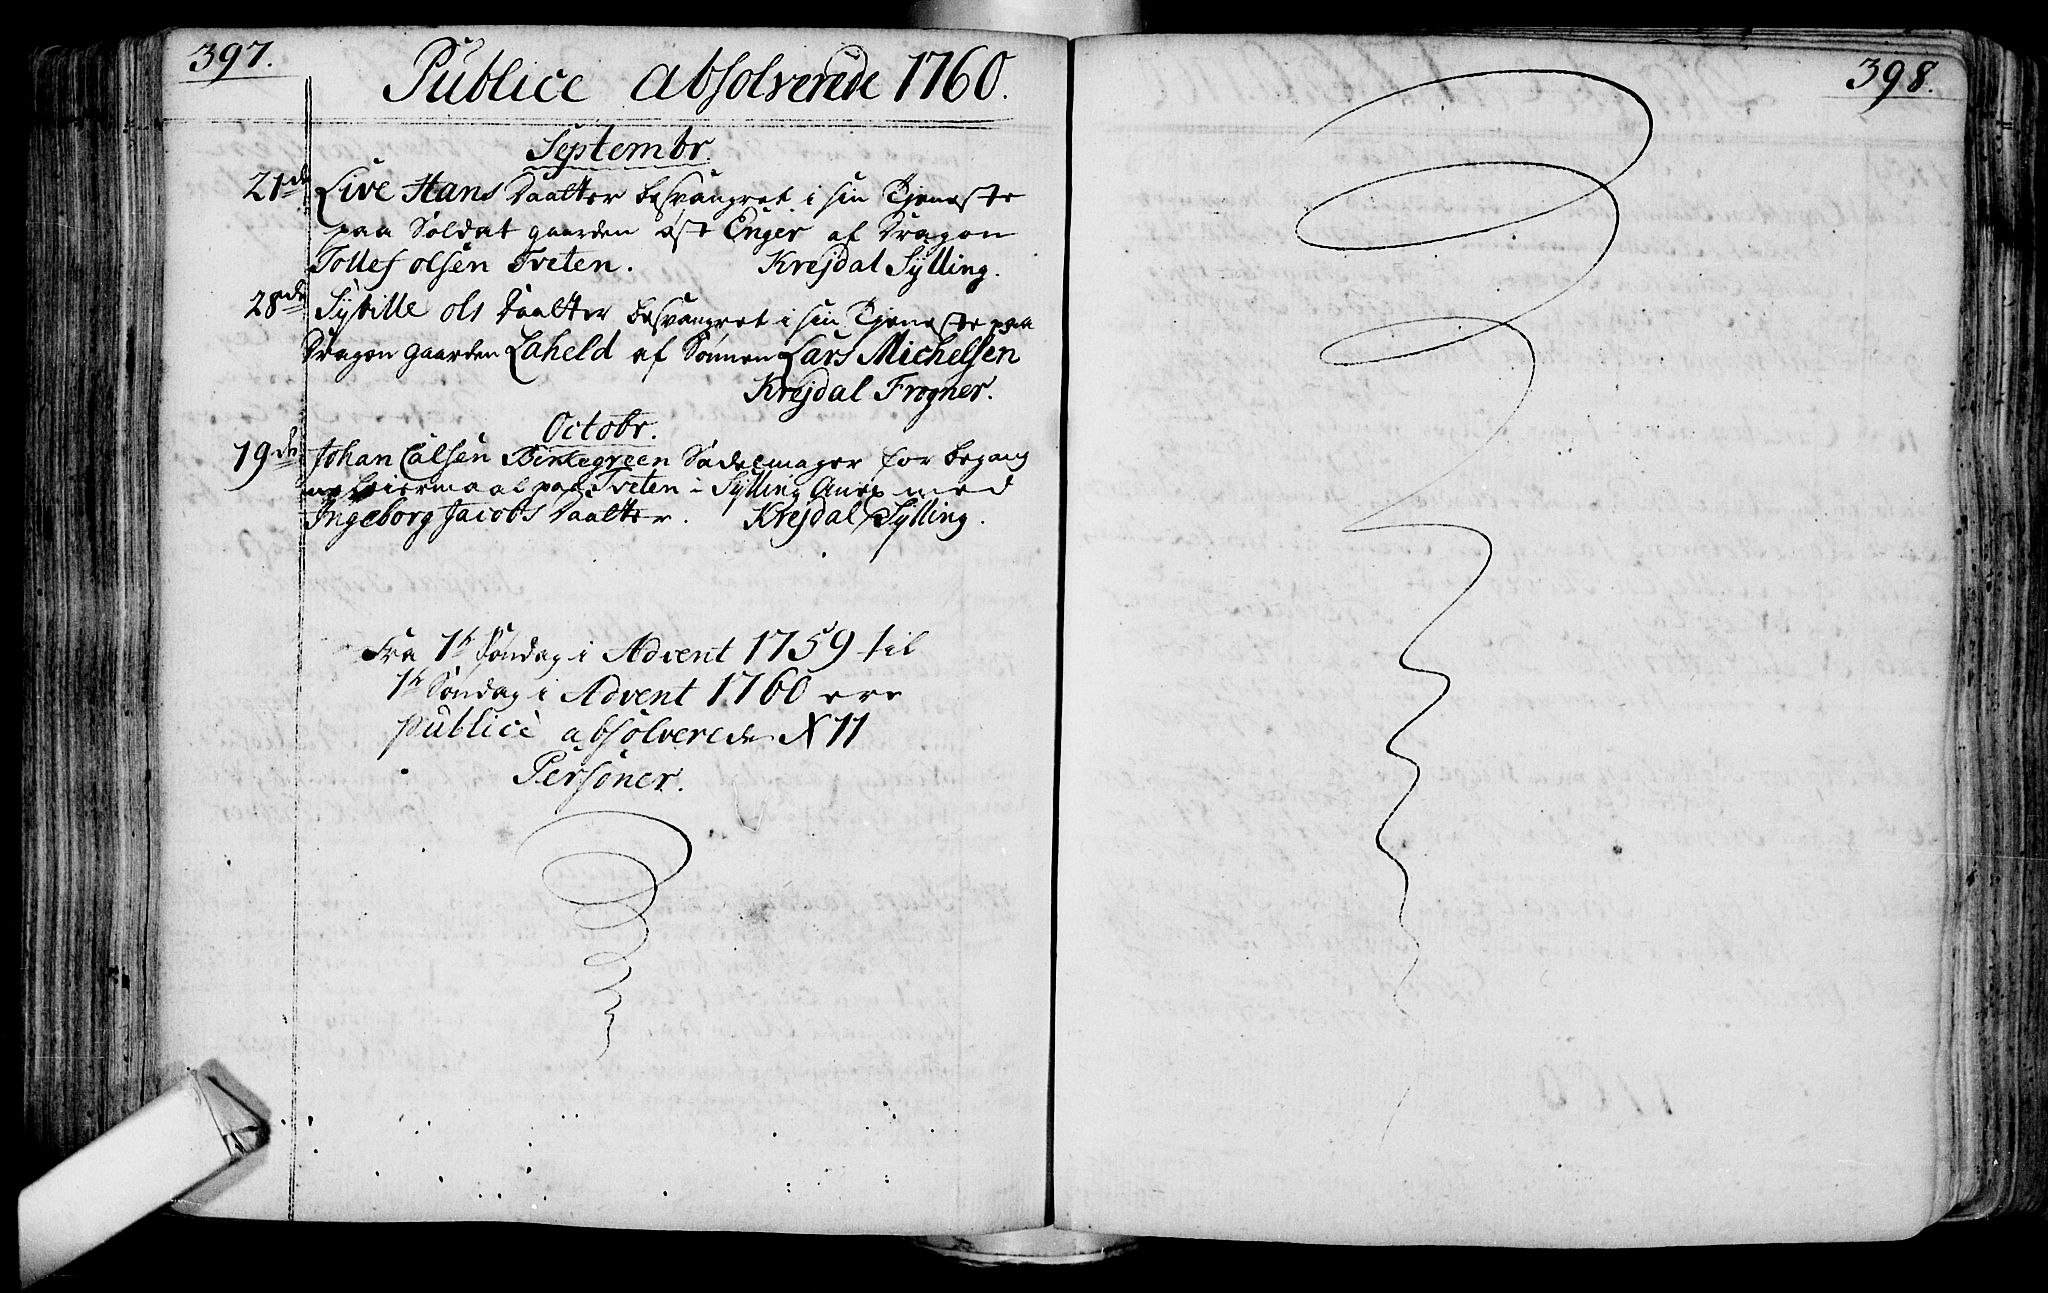 397.
Publice absolverede 1760.
Septembr.
21de Live Hans Daatter besvangret i sin Tjeneste
paa Soldat gaarden øst Enger af Dragon
Tollef olsen Tveten. Krejdal Sylling.
28de Sybille ols Daatter besvangret i sin Tjeneste paa
Dragon gaarden Laheld af Sønnen Lars Michelsen
Krejdal Frogner.
Octobr.
19de Johan Calsen Sadelmager for begang
ne Leiermaal paa Tveten i Sylling Anex med
Ingeborg Jacobs Daatter. Krejdal Sylling.
Fra 1te Søndag i Advent 1759 til
1te Søndag i Advent 1760 ere
publicè absolverede X 11
Personer.
398.